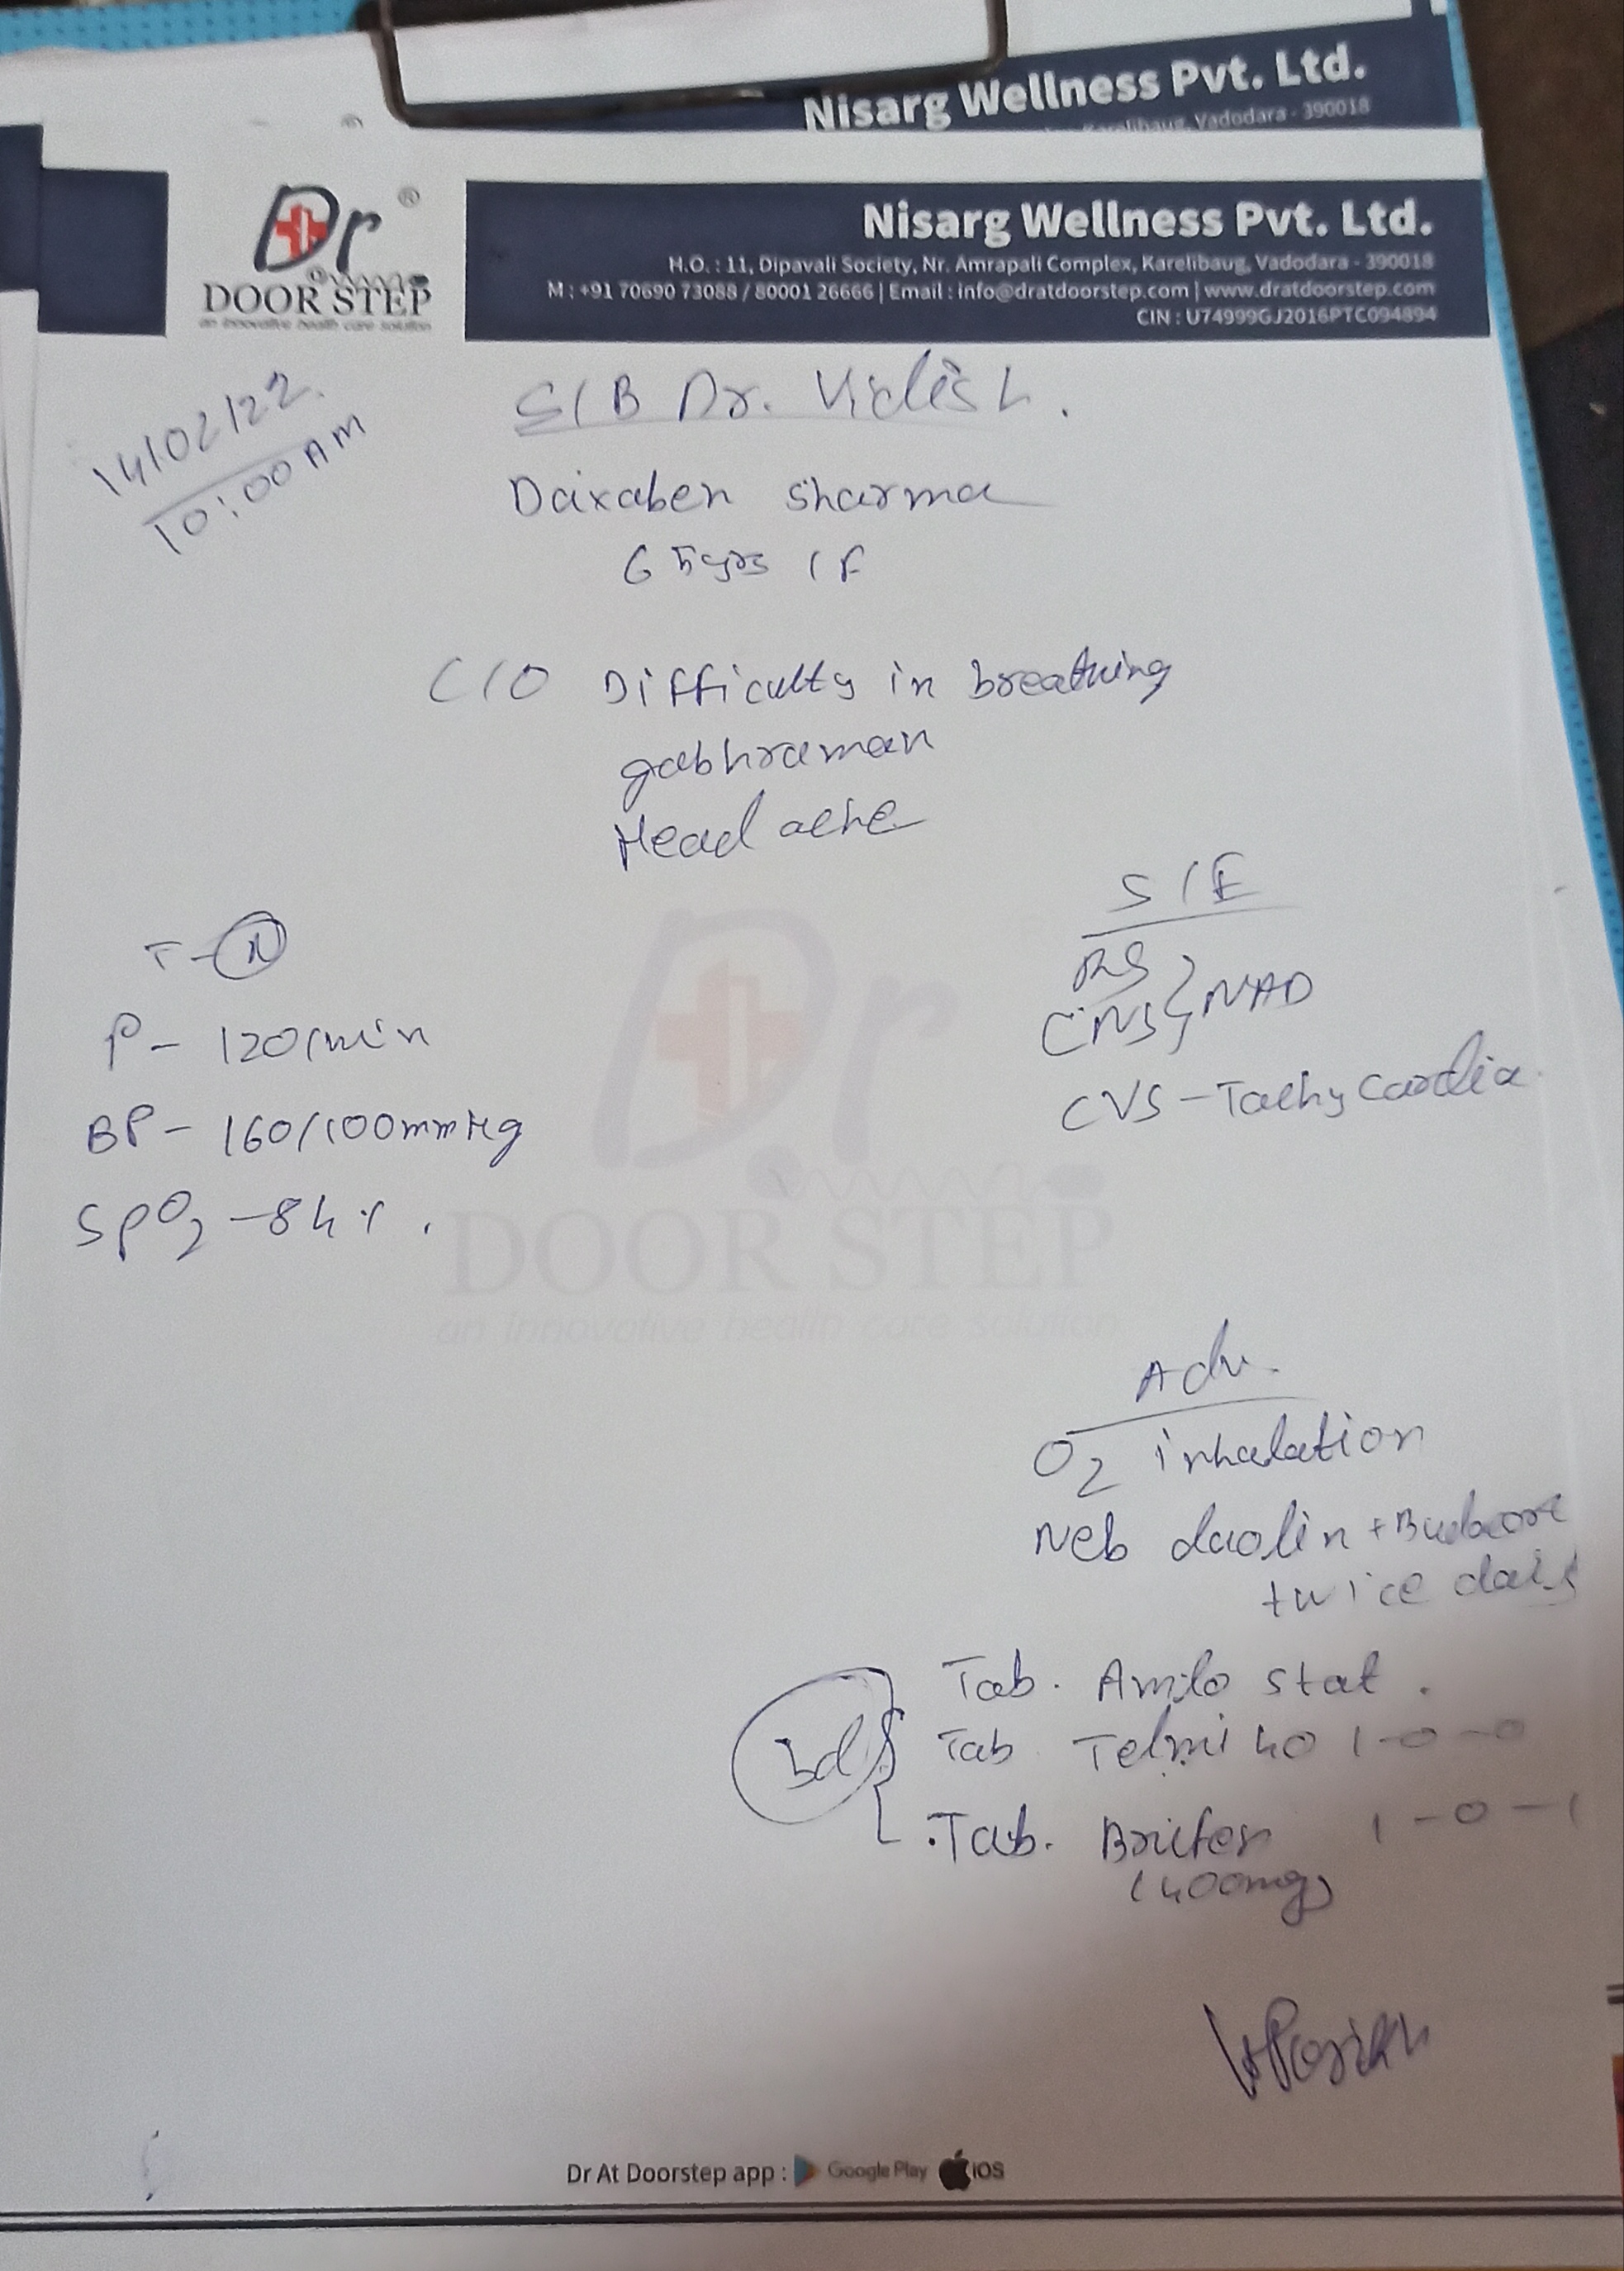 Nisarg Wellness Pvt. Ltd.
Karelibaug, Vadodara - 390018
Dr ®
DOOR STEP
an innovative health care solution
Nisarg Wellness Pvt. Ltd.
H.O. : 11, Dipavali Society, Nr. Amrapali Complex, Karelibaug, Vadodara - 390018
M : +91 70690 73088 / 80001 26666 | Email : info@dratdoorstep.com | www.dratdoorstep.com
CIN : U74999GJ2016PTC094894
14/02/22.
10:00 AM
S/B Dr. Vidish.
Daxaben sharma
65yrs / F
C/O Difficulty in breathing
gabhraman
Head ache
T - N
P - 120/min
BP - 160/100mmHg
SpO2 - 84%.
S/E
RS
CNS } NAD
CVS - Tachycardia.
Dr
DOOR STEP
an innovative health care solution
Adv.
O2 inhalation
Neb duolin + Budecort
twice daily
Tab. Amlo stat.
Tab Telmi 40 1-0-0
Tab. Brufen 1-0-1
(400mg)
Dr At Doorstep app : Google Play iOS